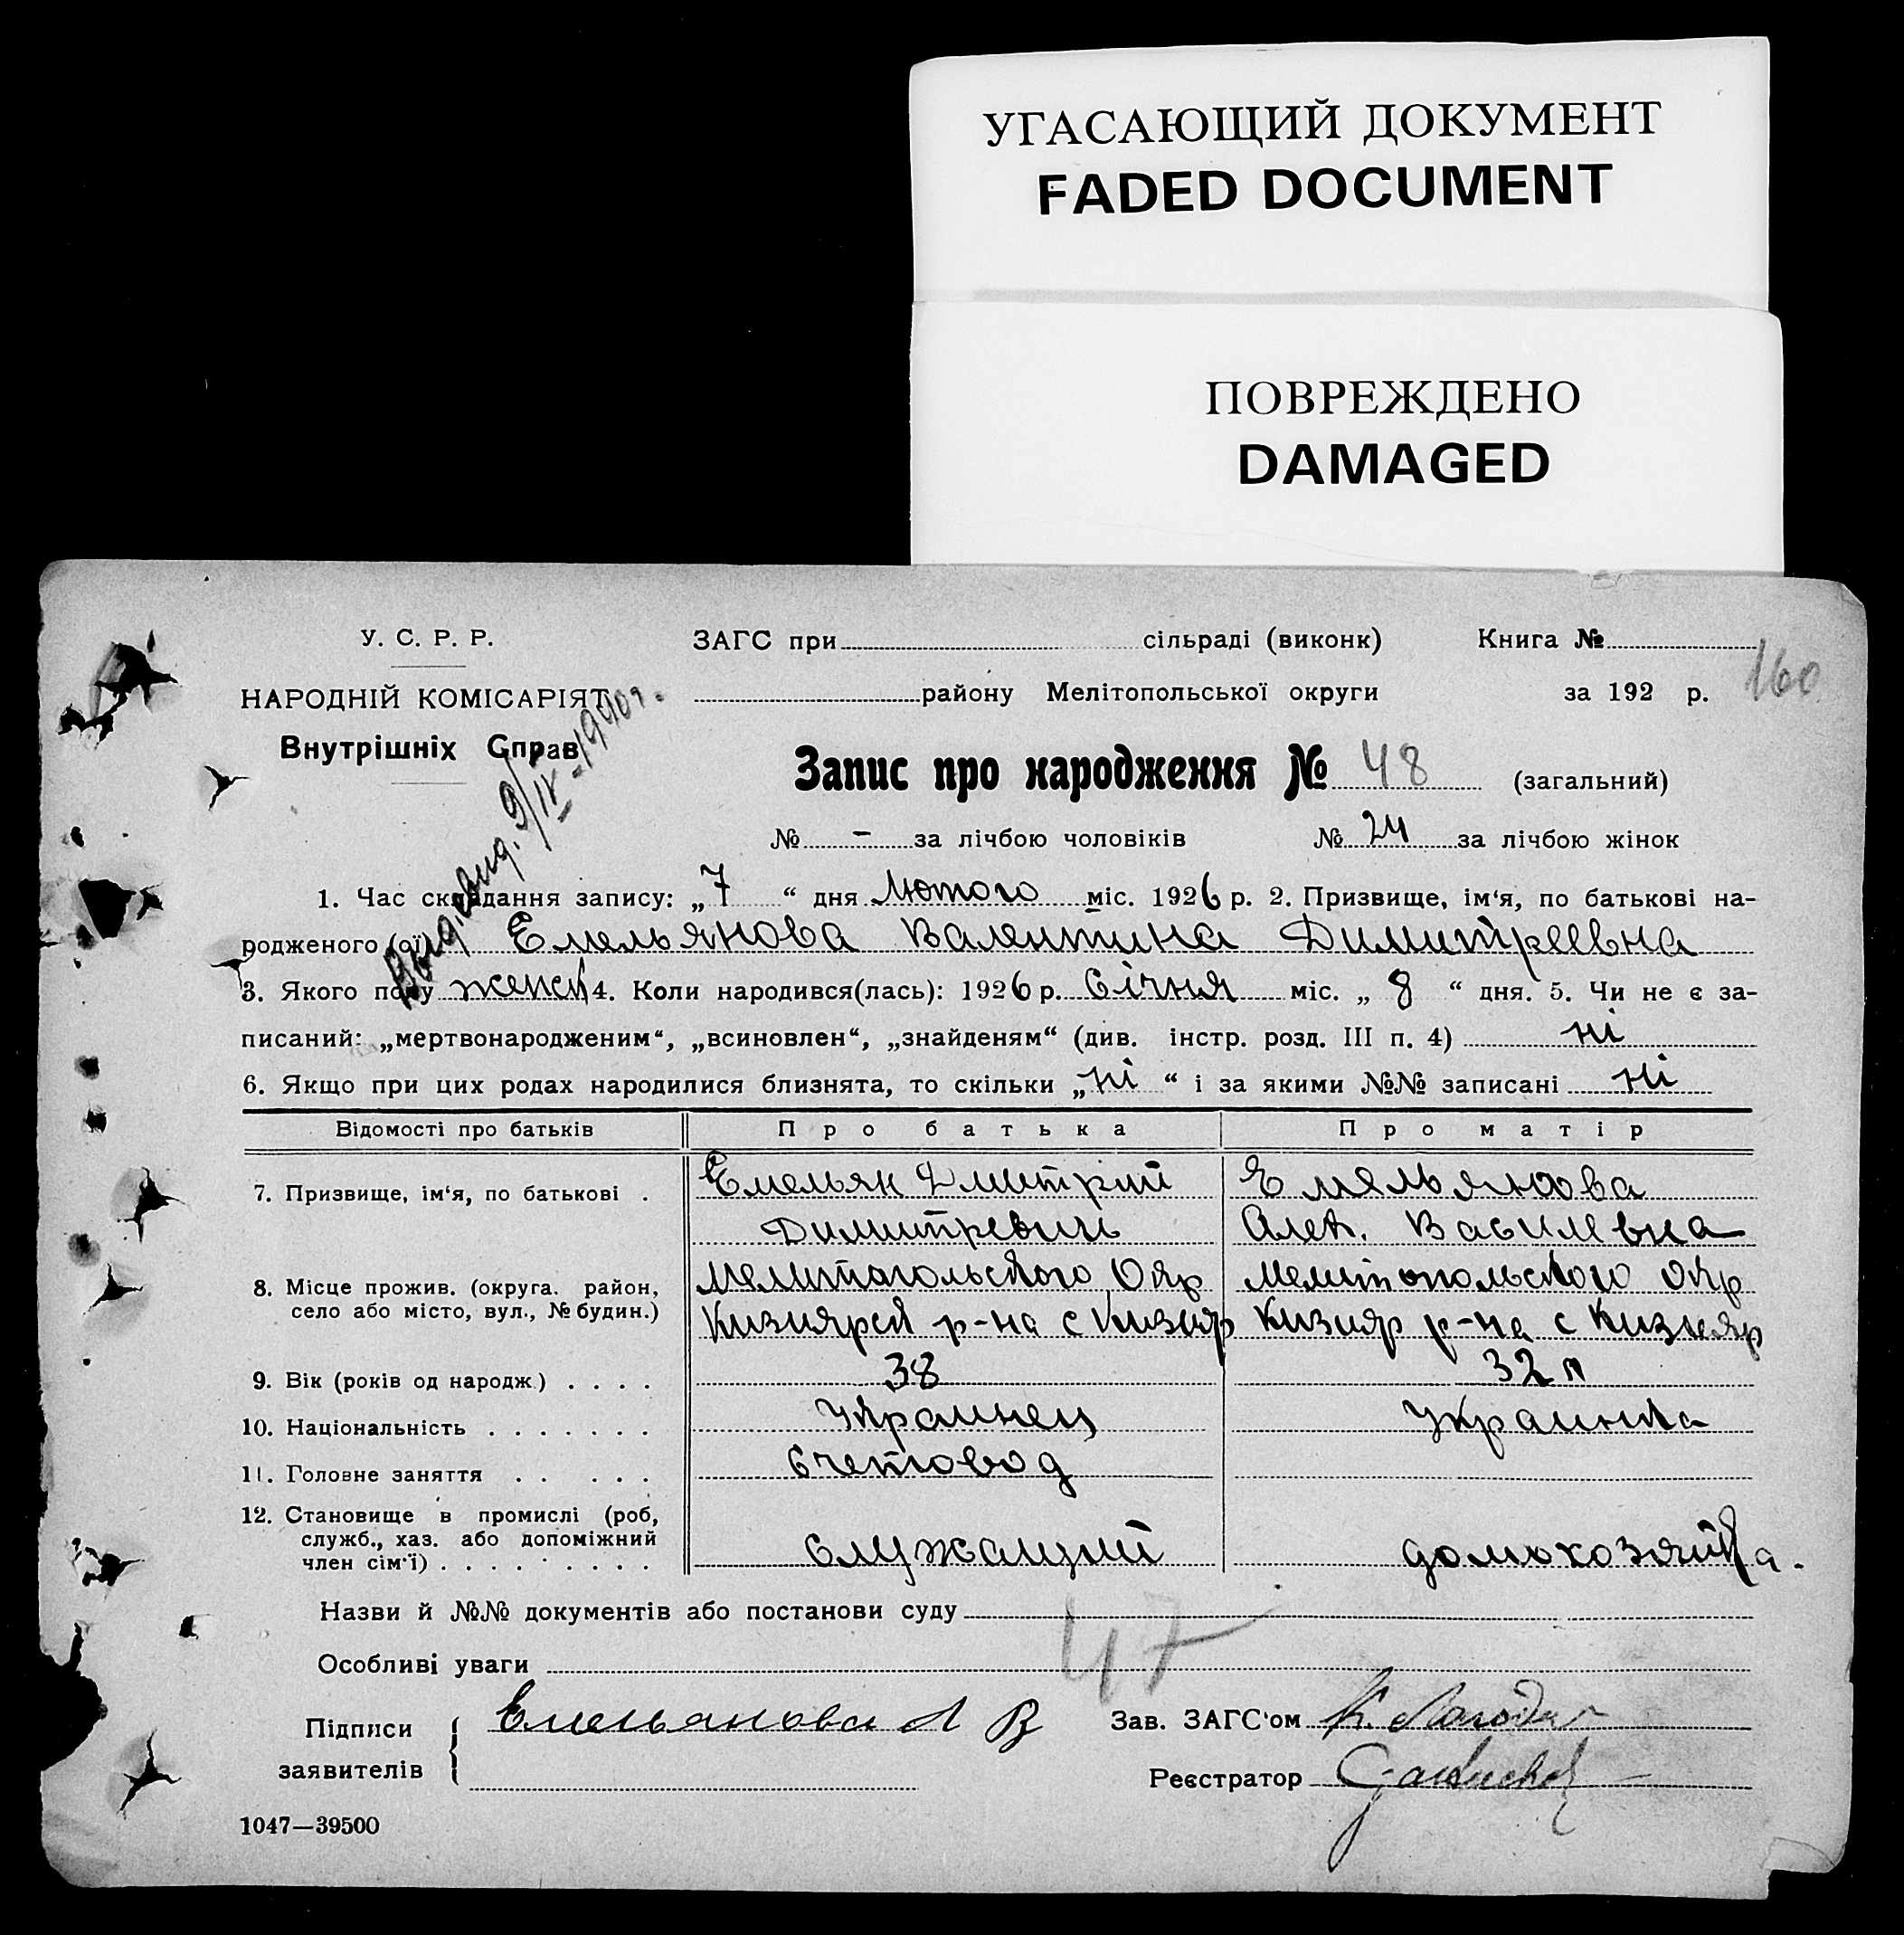 УГАСАЮЩИЙ ДОКУМЕНТ
FADED DOCUMENT
ПОВРЕЖДЕНО
DAMAGED
У. С. Р. Р.
НАРОДНІЙ КОМІСАРІЯТ
Внутрішніх Справ
ЗАГС при сільраді (виконк) Книга №
160
району Мелітопольської округи за 192 р.
Запис про народження № 48 (загальний)
№ - за лічбою чоловіків № 24 за лічбою жінок
9/IV-1940г.
1. Час складання запису: „7“ дня Лютого міс. 1926 р. 2. Призвище, ім‘я, по батькові на-
родженого (ої) Емельянова Валентина Димитреевна
3. Якого полу женск 4. Коли народився(лась): 1926 р. Січня міс. „8“ дня. 5. Чи не є за-
писаний: „мертвонародженим“, „всиновлен“, „знайденям“ (див. інстр. розд. III п. 4) ні
6. Якщо при цих родах народилися близнята, то скільки „ні“ і за якими №№ записані ні
Відомості про батьків Про батька Про матір
7. Призвище, ім‘я, по батькові . Емельян Дмитрий Емельянова
Димитревич Алек. Василевна
8. Місце прожив. (округа. район, Мелитопольского Окр Мелитопольского Окр
село або місто, вул., № будин.) Кизиярск р-на с Кизияр Кизияр р-на с Кизияр
9. Вік (років од народж.) . . . . 38 32 л
10. Національність . . . . . . . Украинец Украинка
11. Головне заняття . . . . . Счетовод
12. Становище в промислі (роб,
служб., хаз. або допоміжний
член сім‘ї) . . . . . . . . . Служащий домохозяйка.
Назви й №№ документів або постанови суду
47
Особливі уваги
Підписи заявителів Емельянова А В
Зав. ЗАГС‘ом
Реєстратор
1047—39500